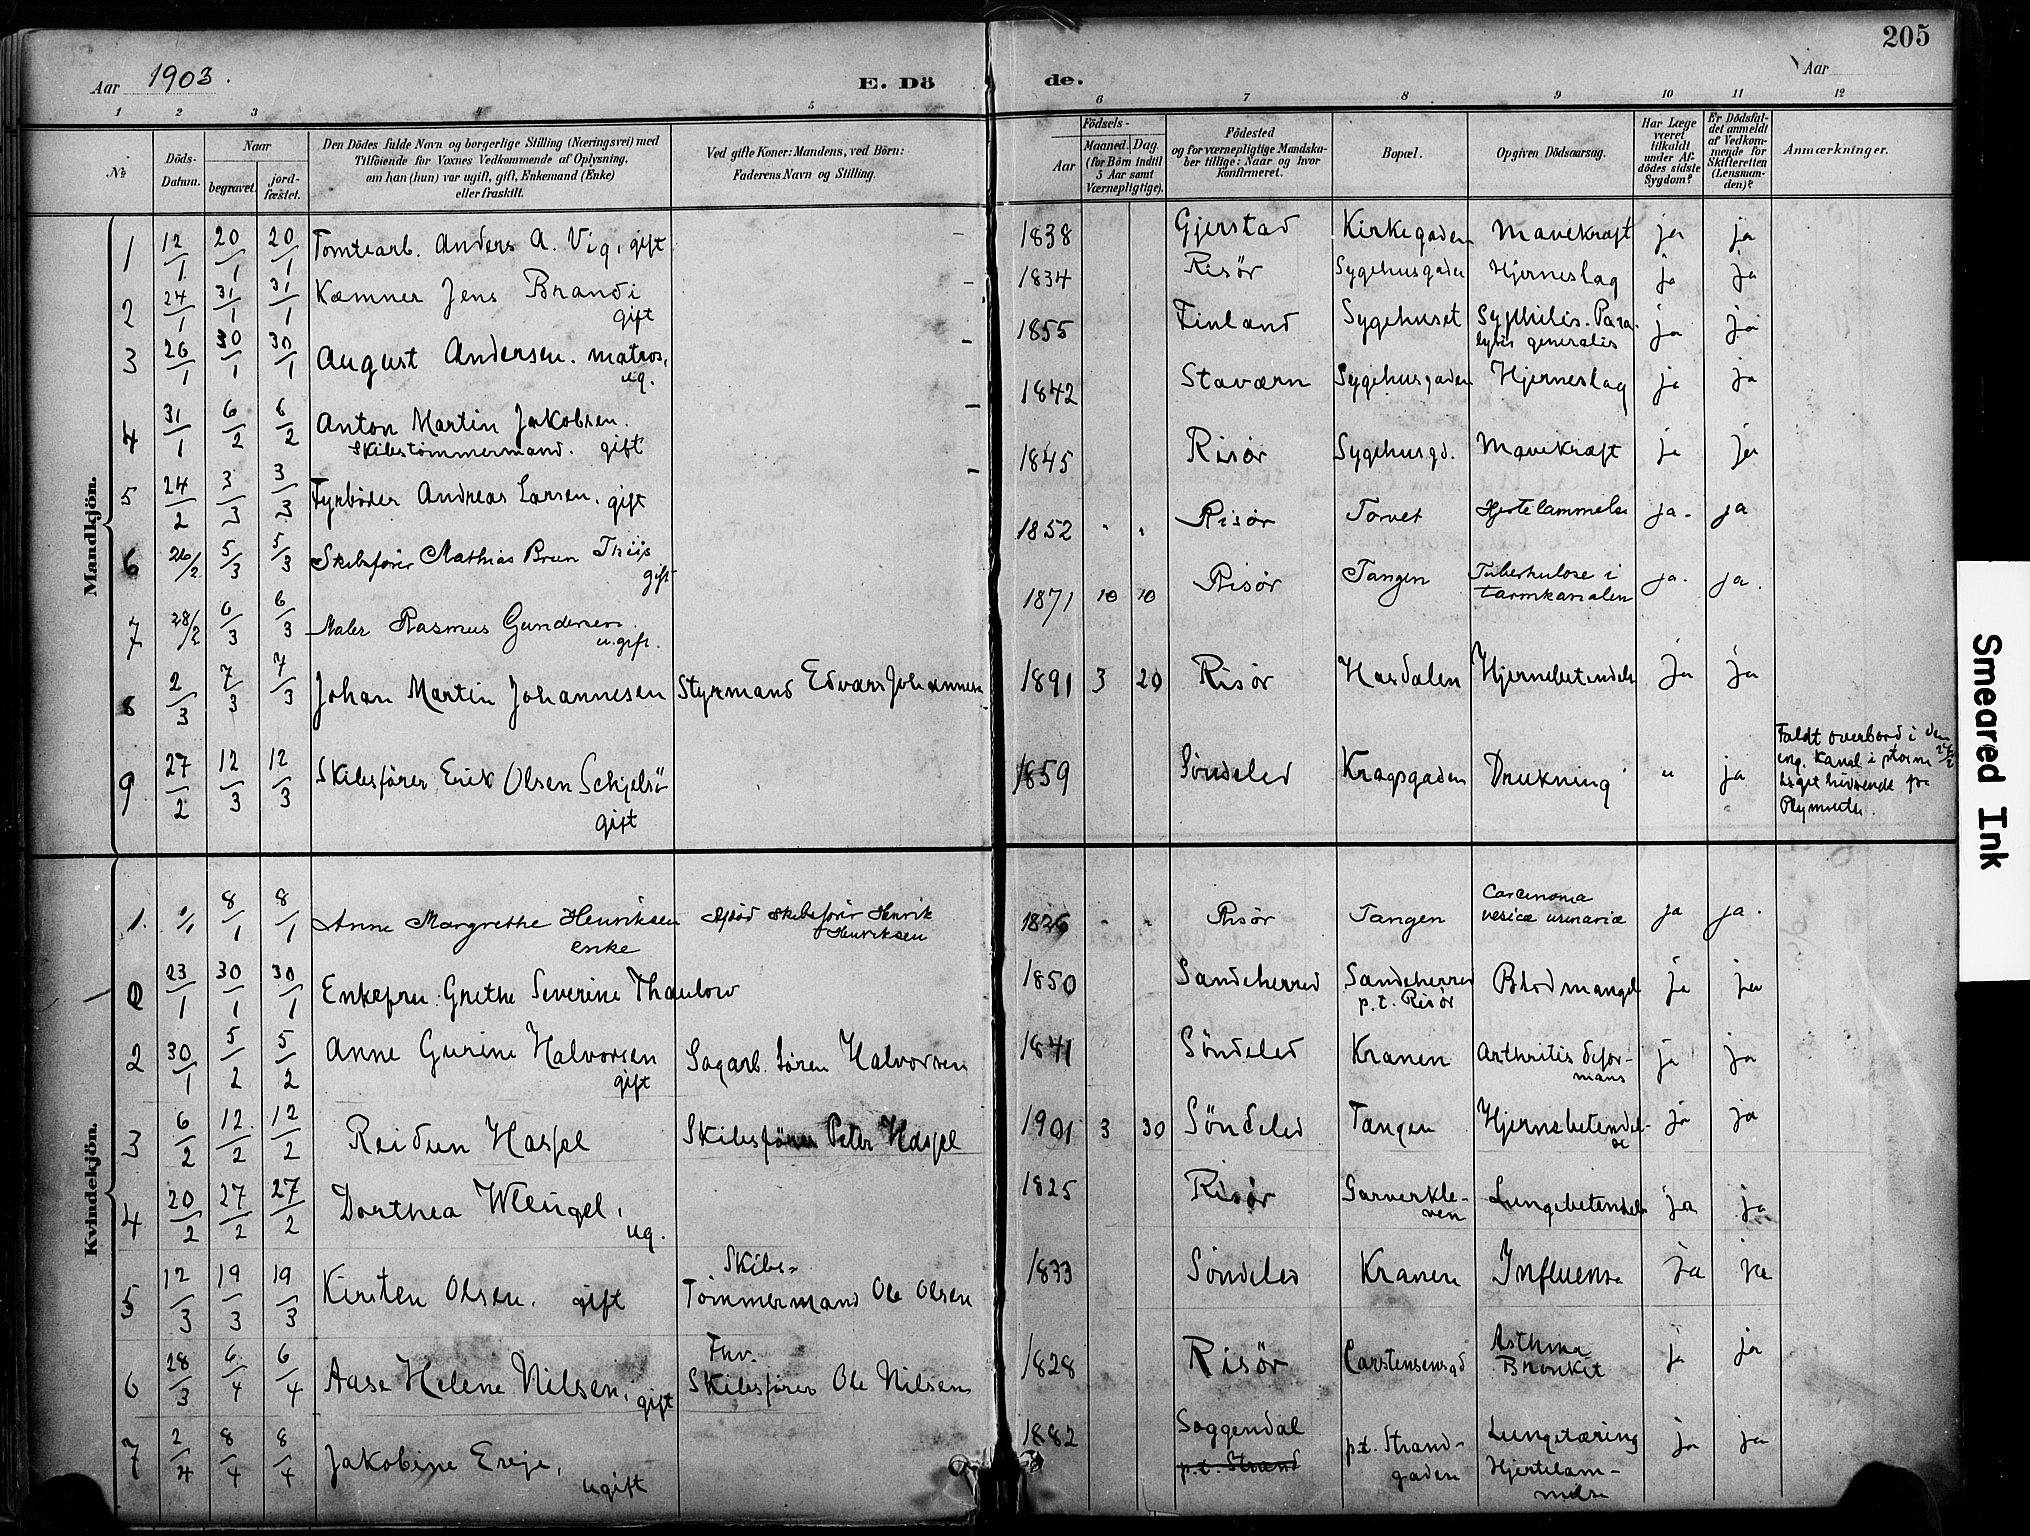 205
Aar 1903. E. Dö de. Aar
1 2 3 4 5 6 7 8 9 10 11 12
№ Döds-Datum. Naar begravet. jord-fæstet. Den Dödes fulde Navn og borgerlige Stilling (Næringsvei) med Tilföiende for Voxnes Vedkommende af Oplysning, om han (hun) var ugift, gift, Enkemand (Enke) eller fraskilt. Ved gifte Koner: Mandens, ved Börn: Faderens Navn og Stilling. Födsels- Aar Maaned. Dag. (for Börn indtil 5 Aar samt Værnepligtige). Födested og for værnepligtige Mandskaber tillige: Naar og hvor konfirmeret. Bopæl. Opgiven Dödsaarsag. Har Læge været tilkaldt under Afdödes sidste Sygdom? Er Dödsfaldet anmeldt af Vedkommende for Skifteretten (Lensmanden)? Anmærkninger.
Mandkjön.
1 12/1 20/1 20/1 Tomtearb. Anders A. Vig, gift - 1838 Gjerstad Kirkegaden Mavekræft ja ja
2 24/1 31/1 31/1 Kæmner Jens Brandi gift - 1834 Risør Sygehusgaden Hjerneslag ja ja
3 26/1 30/1 30/1 August Andersen. matros, ug. - 1855 Finland Sygehuset Syphilis. Paralysis generalis ja ja
4 31/1 6/2 6/2 Anton Martin Jakobsen. Skibstömmermand. gift - 1842 Staværn Sygehusgaden Hjerneslag ja ja
5 24/2 3/3 3/3 Fyrböder Andreas Larsen. gift - 1845 Risør Sygehusgd. Mavekræft ja ja
6 26/2 5/3 5/3 Skibsfører Mathias Brun Thiis gift 1852 " " Risør Torvet Hjertelammelse ja. ja
7 28/2 6/3 6/3 Maler Rasmus Gundersen. u.gift. 1871 10 10 Risør Tangen Tuberkulose i tarmkanalen ja. ja.
8 2/3 7/3 7/3 Johan Martin Johannesen Styrmand Edvard Johannesen 1891 3 20 Risør Hasdalen Hjernebetændelse ja ja
9 27/2 12/3 12/3 Skibsfører Erik Olsen Schjelsö gift 1859 Söndeled Kragsgaden Drukning " ja Faldt overbord i den eng. Kanal i storm 27/2 Liget hidsende fra Plymouth.
Kvindekjön.
1. 1/1 8/1 8/1 Anne Margrethe Henriksen enke Afdöd skibsfører Henrik Henriksen 1826 " " Risør Tangen Carcenoma vesicæ urinariæ ja ja.
23/1 30/1 30/1 Enkefru Grethe Severine Thaulow 1850 Sandeherred Sandeherred p.t. Risør Blodmangel ja ja
2 30/1 5/2 5/2 Anne Gurine Halvorsen gift Sagarb. Sören Halvorsen 1841 Söndeled Kranen Arthritis deformans ja ja
3 6/2 12/2 12/2 Reidun Hasfel Skibsfører Peter Hasfel 1901 3 30 Söndeled Tangen Hjernebetændelse ja ja
4 20/2 27/2 27/2 Dorthea Wleugel, ug. 1825 Risør Garverkleven Lungebetændelse ja ja
5 12/3 19/3 19/3 Kirsten Olsen. gift Skibs-Tömmermand Ole Olsen 1833 Söndeled Kranen Influensa ja ja
6 28/3 6/4 6/4 Aase Helene Nilsen, gift Fhv. Skibsfører Ole Nilsen 1828 Risør Carstensensgd Asthma Bronkit ja ja
7 2/4 8/4 8/4 Jakobine Ereje, ugift 1882 Soggendal p.t. Strand p.t. Strandgaden Lungetæring Hjertelammelse ja ja
Smeared Ink